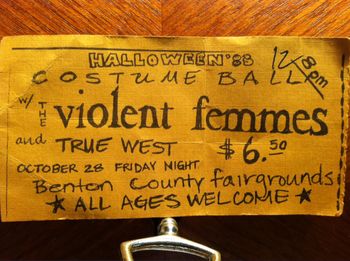 HALLOWEEN '88
COSTUME BALL 8pm
w/ THE violent femmes
and TRUE WEST $6.50
OCTOBER 28 FRIDAY NIGHT
Benton County fairgrounds
★ ALL AGES WELCOME ★